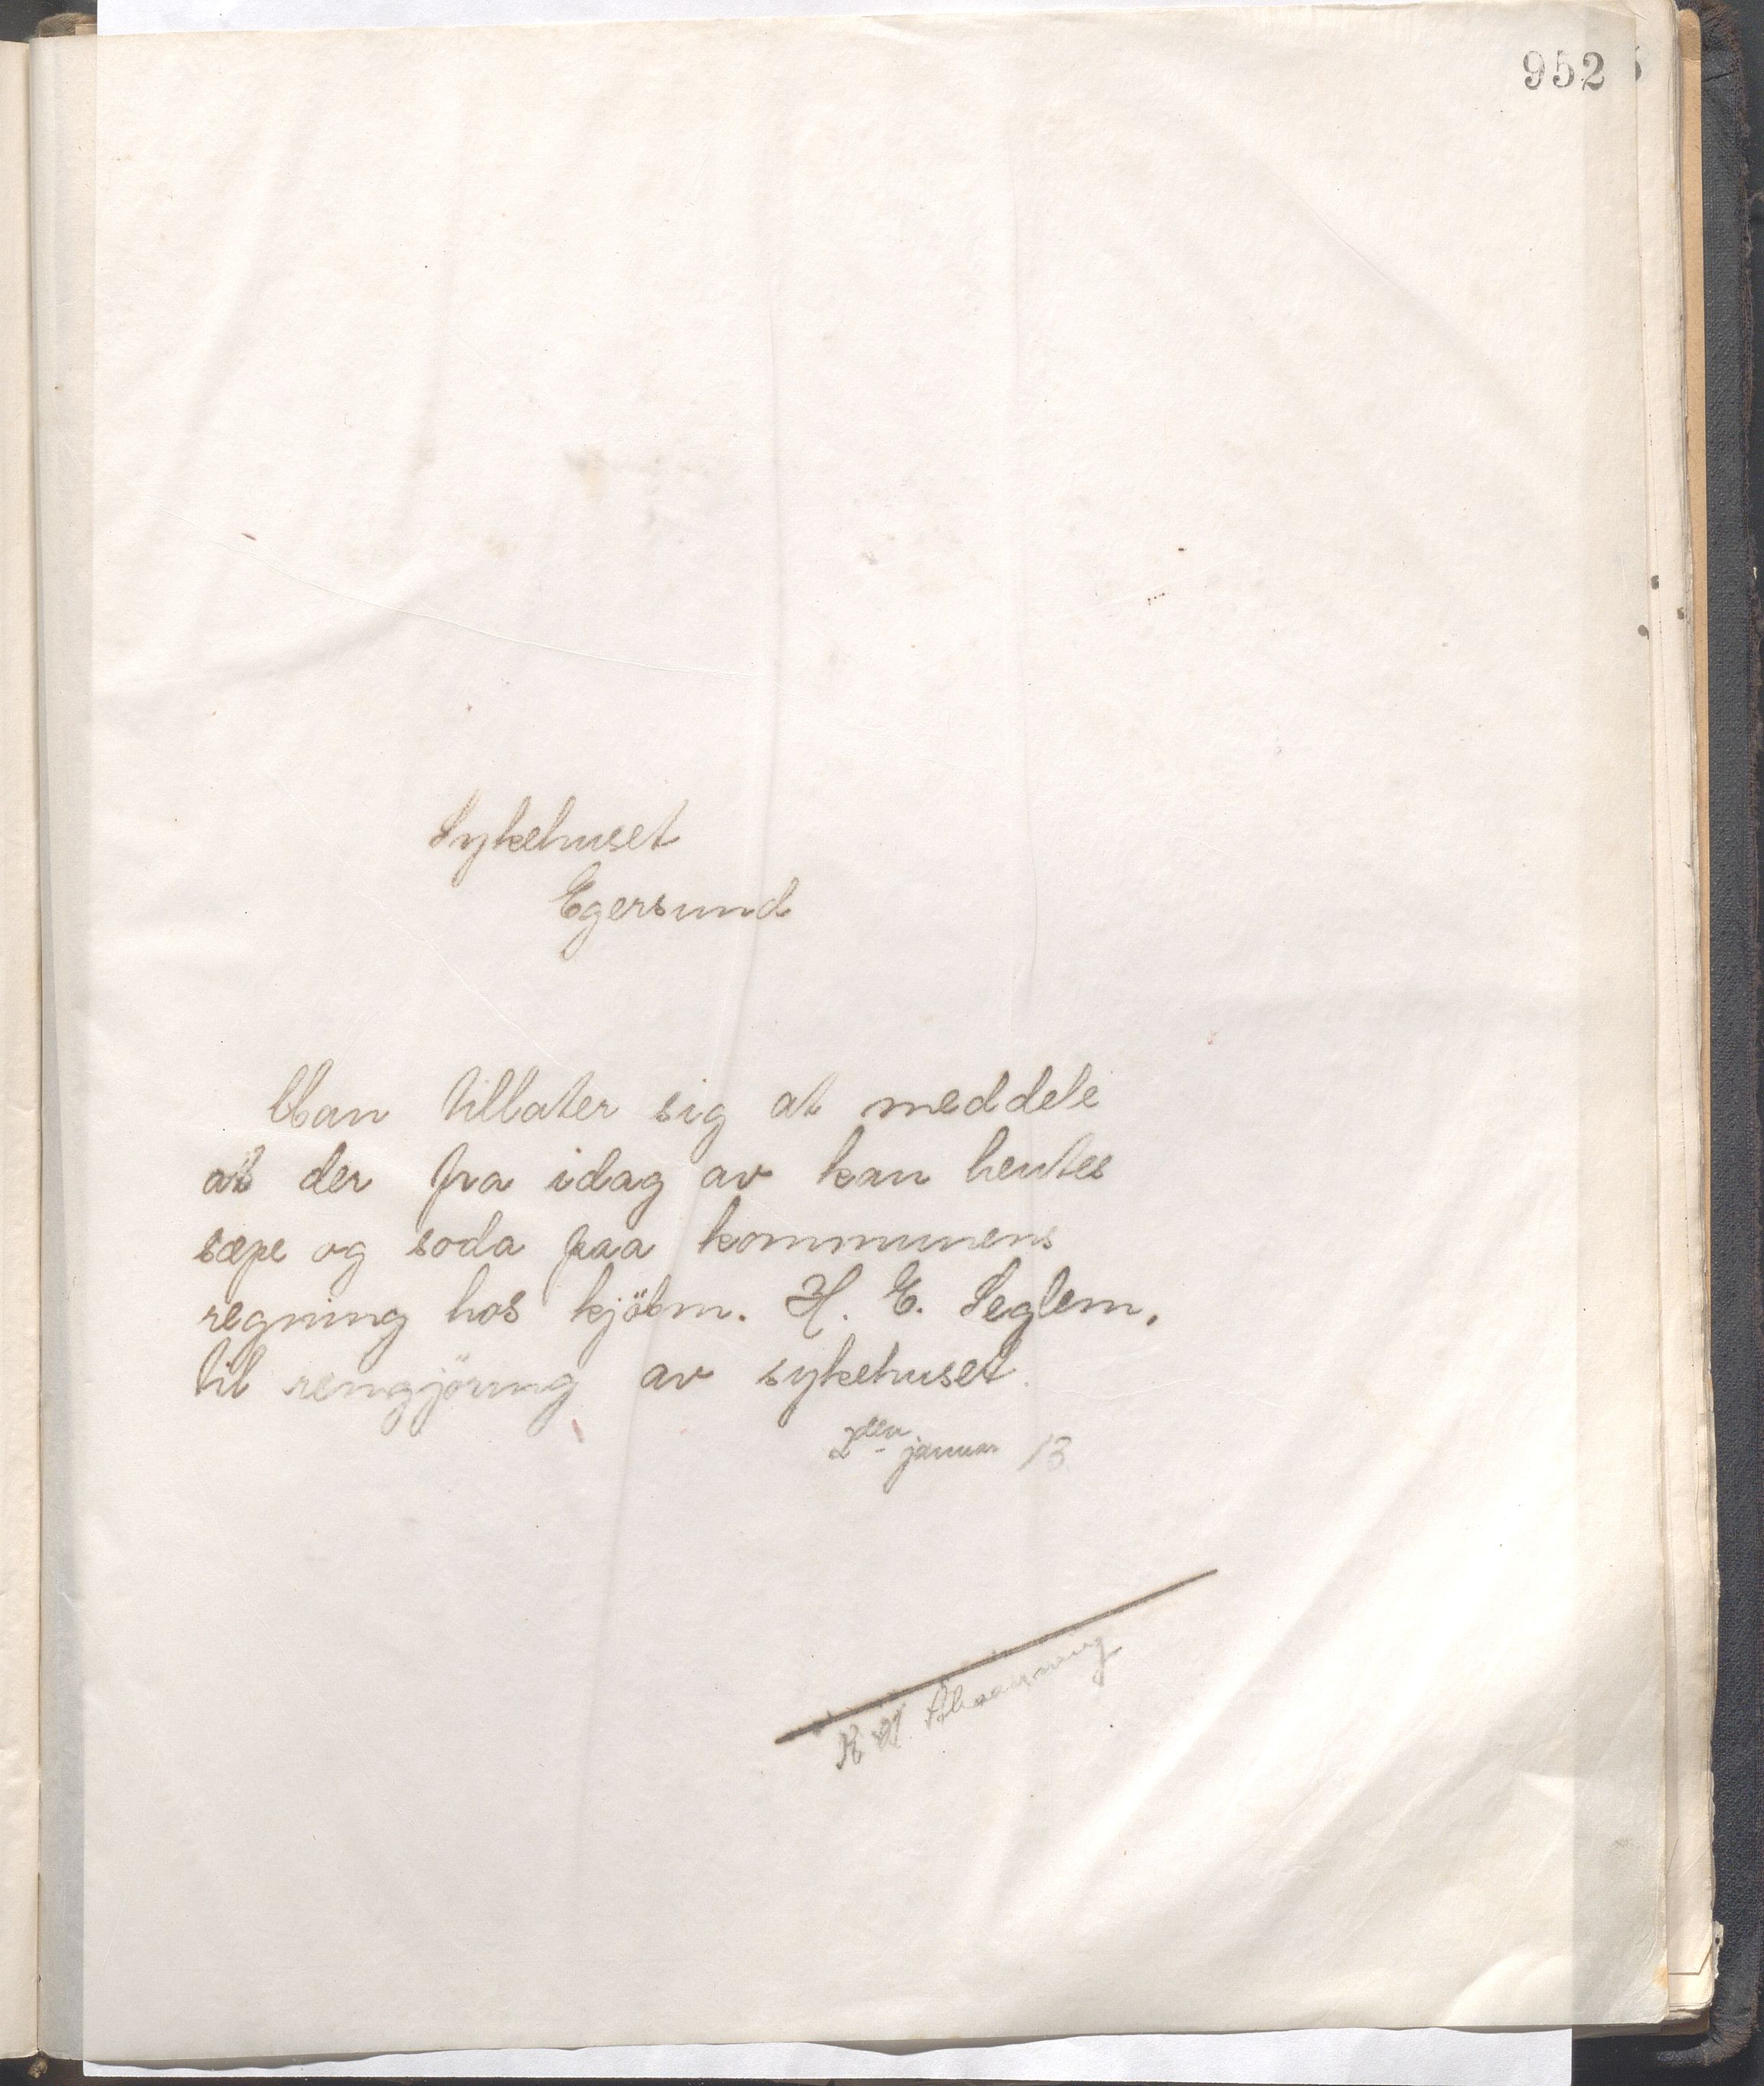 952
Sykehuset
Egersund
Man tillater sig at meddele
at der fra idag av kan hentes
sæpe og soda paa kommunens
regning hos kjöbm. H. E. Seglem,
til rengjöring av sykehuset.
2den januar 13